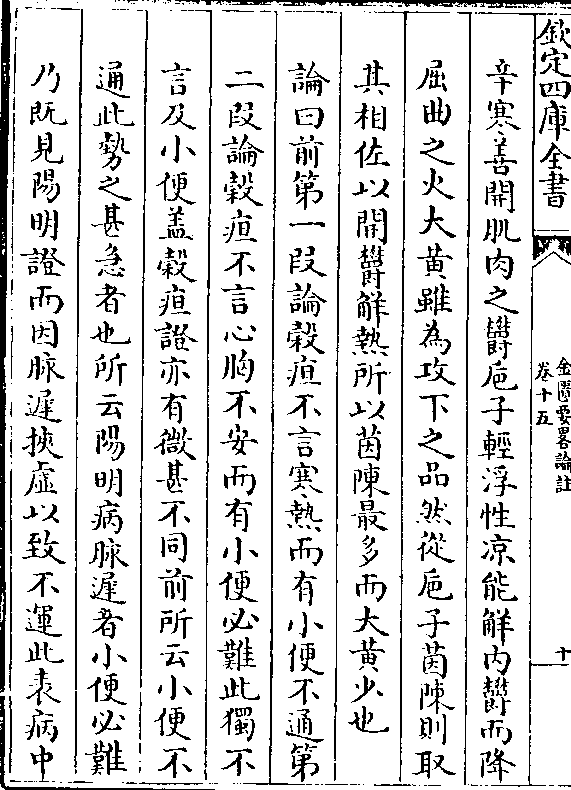 欽定四庫全書
金匱要畧論註
卷十五
十
辛寒善開肌肉之欝巵子輕浮性凉能解内欝而降
屈曲之火大黄雖為攻下之品然從巵子茵陳則取
其相佐以開欝解熱所以茵陳最多而大黄少也
論曰前第一段論穀疸不言寒熱而有小便不通第
二段論穀疸不言心胸不安而有小便必難此獨不
言及小便盖穀疸證亦有微甚不同前所云小便不
通此勢之甚急者也所云陽明病脉遲者小便必難
乃既見陽明證而因脉遲挾虚以致不運此表病中